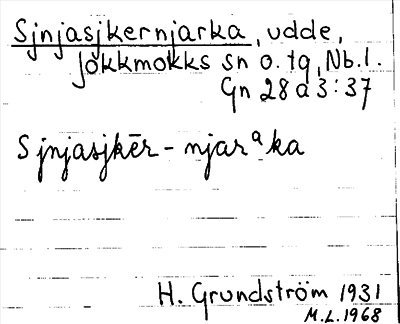 Sjnjasjkernjarka, udde,
Jokkmokks sn o. tg, Nb. l.
Gn 28 a 3:37
Sjnjasjkēr-njarᵃka
H. Grundström 1931
M.L. 1968